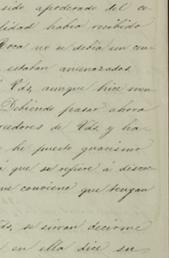 sido apoderado del ce
lidad habia recibido
Roca no se debia un cen
estaban amenazados
Vds, aunque hice
Debiendo pasar ahora
redores de Vds y ha
he puesto
á que se refiere á
que conviene que tengan
se sirvan decirme
en ella dice su